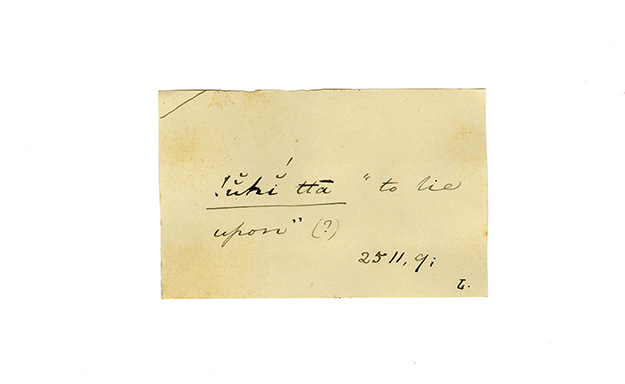 !ŭhĭ ttā "to lie
upon" (?)
2511, 9;
L.